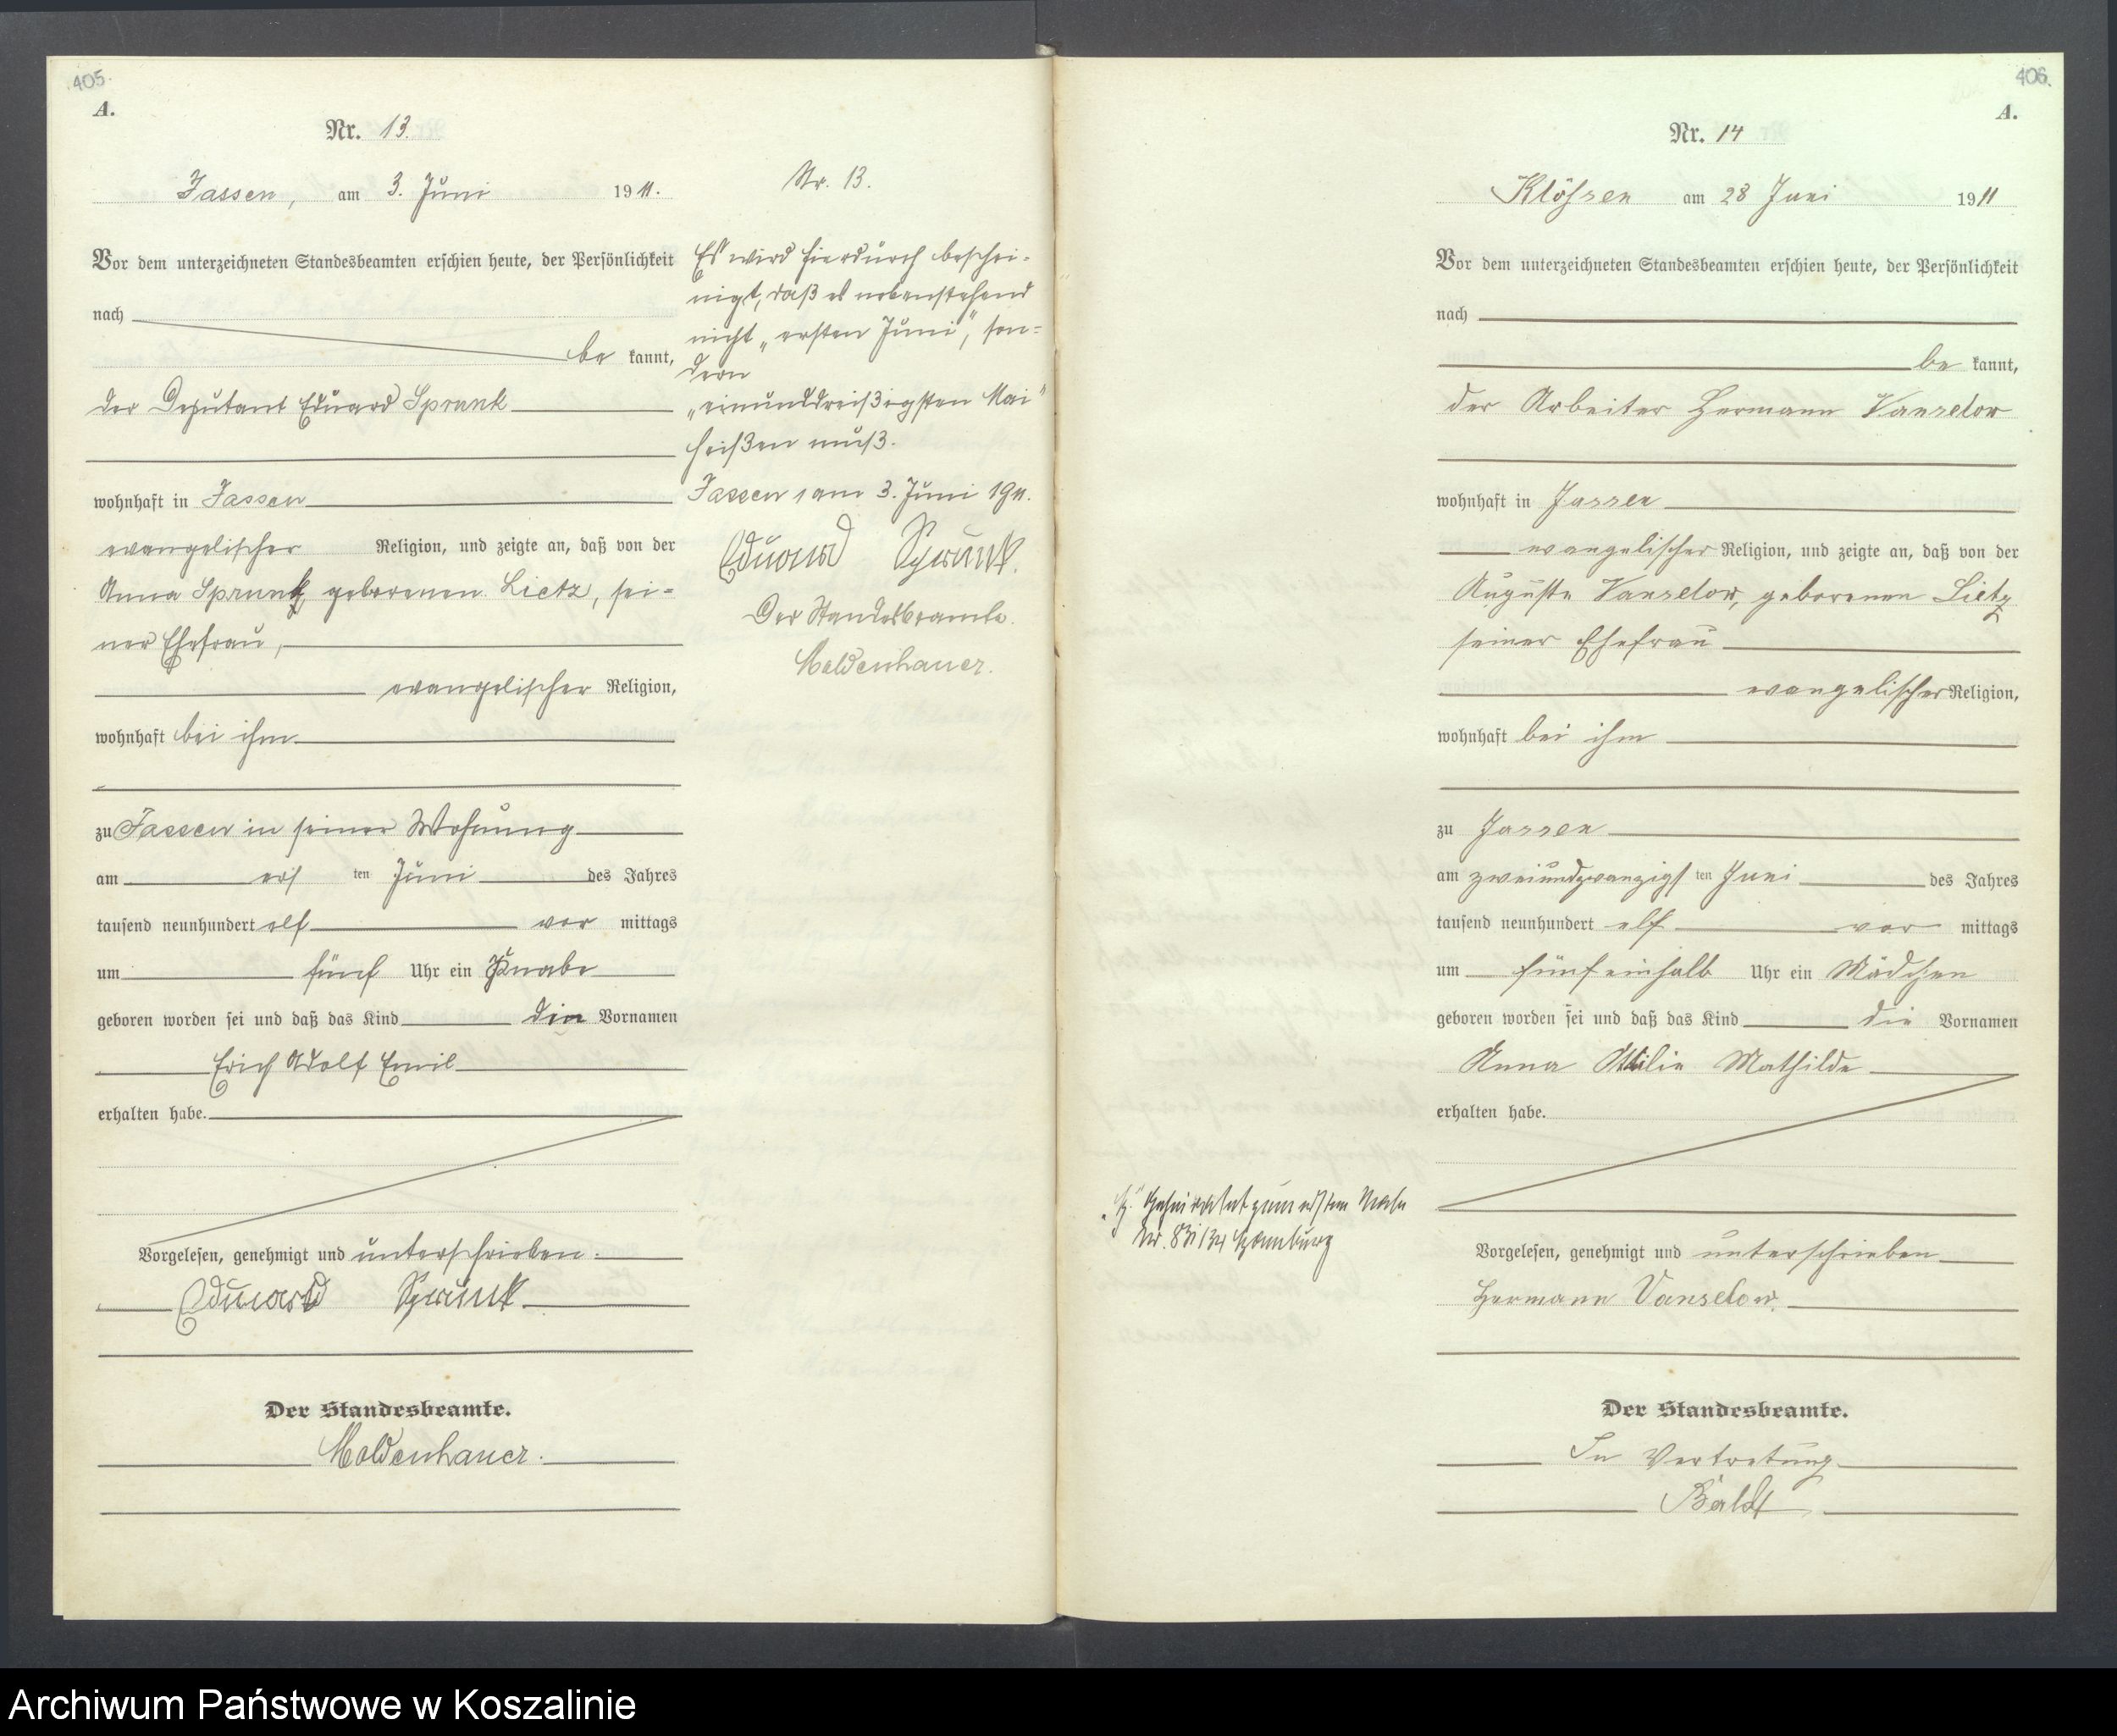 405.
A.
Nr. 13.
Jassen, am 3. Juni 1911.
Vor dem unterzeichneten Standesbeamten erschien heute, der Persönlichkeit
nach
be kannt,
der Deputant Eduard Sprunk
wohnhaft in Jassen
evangelischer Religion, und zeigte an, daß von der
Anna Sprunk, geborenen Lietz, sei-
ner Ehefrau,
evangelischer Religion,
wohnhaft bei ihm
zu Jassen in seiner Wohnung
am ers ten Juni des Jahres
tausend neunhundert elf vor mittags
um fünf Uhr ein Knabe
geboren worden sei und daß das Kind die Vornamen
Erich Adolf Emil
erhalten habe.
Vorgelesen, genehmigt und unterschrieben.
Eduard Sprunk
Der Standesbeamte.
Moldenhauer.
Nr. 13.
Es wird hierdurch beschei-
nigt, daß es nebenstehend
nicht „ersten Juni", son-
dern
„einunddreißigsten Mai"
heißen muß.
Jassen, am 3. Juni 1911.
Eduard Sprunk.
Der Standesbeamte.
Moldenhauer.
406.
A.
Nr. 14
Klößen am 28 Juni 1911
Vor dem unterzeichneten Standesbeamten erschien heute, der Persönlichkeit
nach
be kannt,
der Arbeiter Hermann Vanselow
wohnhaft in Jassen
evangelischer Religion, und zeigte an, daß von der
Auguste Vanselow, geborenen Lietz
seiner Ehefrau
evangelischer Religion,
wohnhaft bei ihm
zu Jassen
am zweiundzwanzigs ten Juni des Jahres
tausend neunhundert elf vor mittags
um fünfeinhalb Uhr ein Mädchen
geboren worden sei und daß das Kind die Vornamen
Anna Mathilde
erhalten habe.
Vorgelesen, genehmigt und unterschrieben
Hermann Vanselow.
Der Standesbeamte.
In Vertretung
"H." Geheiratet zum ersten Male
Nr. Hamburg
Archiwum Państwowe w Koszalinie